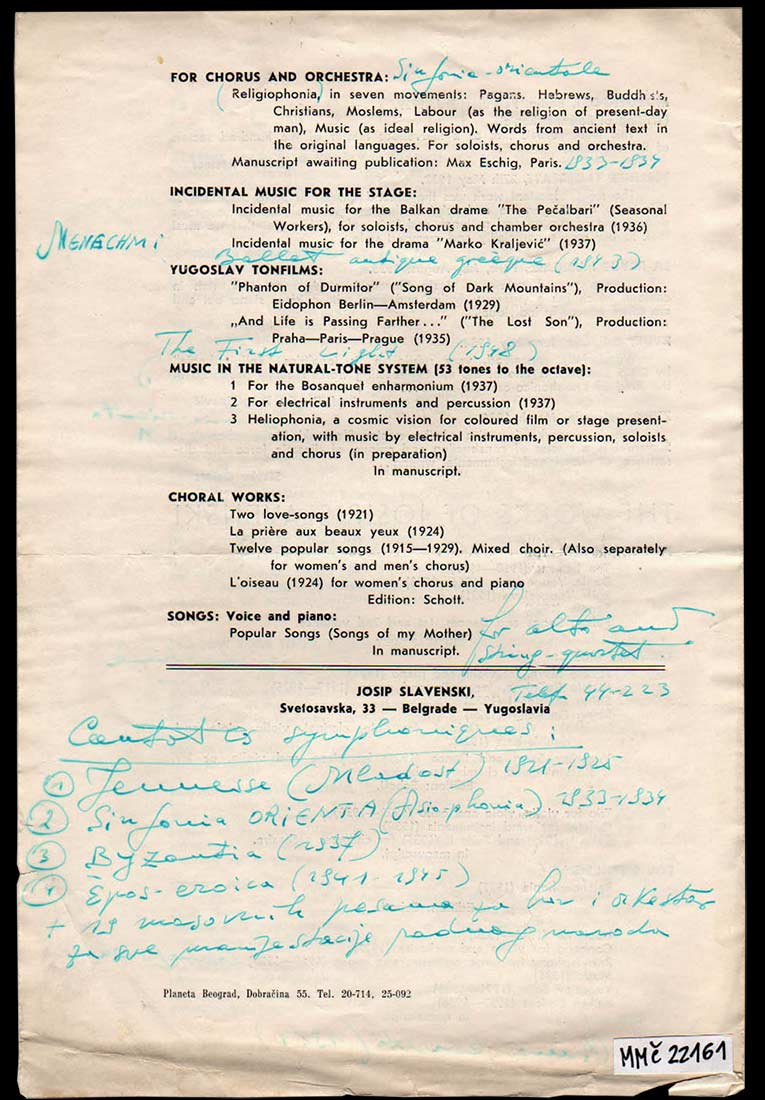 FOR CHORUS AND ORCHESTRA: Sinfonia-orientale
(Religiophonia) in seven movements: Pagans. Hebrews, Buddhists,
Christians, Moslems, Labour (as the religion of present-day
man), Music (as ideal religion). Words from ancient text in
the original languages. For soloists, chorus and orchestra.
Manuscript awaiting publication: Max Eschig, Paris. 1933-1934
INCIDENTAL MUSIC FOR THE STAGE:
Incidental music for the Balkan drame "The Pečalbari" (Seasonal
Workers), for soloists, chorus and chamber orchestra (1936)
MENECHMI
Incidental music for the drama "Marko Kraljević" (1937)
Ballet antique grèque (1943)
YUGOSLAV TONFILMS:
"Phanton of Durmitor" ("Song of Dark Mountains"), Production:
Eidophon Berlin—Amsterdam (1929)
„And Life is Passing Farther..." ("The Lost Son"), Production:
Praha—Paris—Prague (1935)
The First Light (1948)
MUSIC IN THE NATURAL-TONE SYSTEM (53 tones to the octave):
1 For the Bosanquet enharmonium (1937)
2 For electrical instruments and percussion (1937)
3 Heliophonia, a cosmic vision for coloured film or stage present-
ation, with music by electrical instruments, percussion, soloists
and chorus (in preparation)
In manuscript.
CHORAL WORKS:
Two love-songs (1921)
La prière aux beaux yeux (1924)
Twelve popular songs (1915—1929). Mixed choir. (Also separately
for women's and men's chorus)
L'oiseau (1924) for women's chorus and piano
Edition: Schott.
SONGS: Voice and piano:
Popular Songs (Songs of my Mother) for alto and
In manuscript. string-quartet.
JOSIP SLAVENSKI, Telef. 44-223
Svetosavska, 33 — Belgrade — Yugoslavia
symphoniques:
1 Jeunesse (Mladost) 1921-1925
2 Sinfonia ORIENTA (Asiophonia) 1933-1934
3 Byzantia (1937)
4 Épos-eroica (1941-1945)
+ 19 masovnih pesama za hor i orkestar
za sve manifestacije radnog naroda
Planeta Beograd, Dobračina 55. Tel. 20-714, 25-092
MMČ 22161